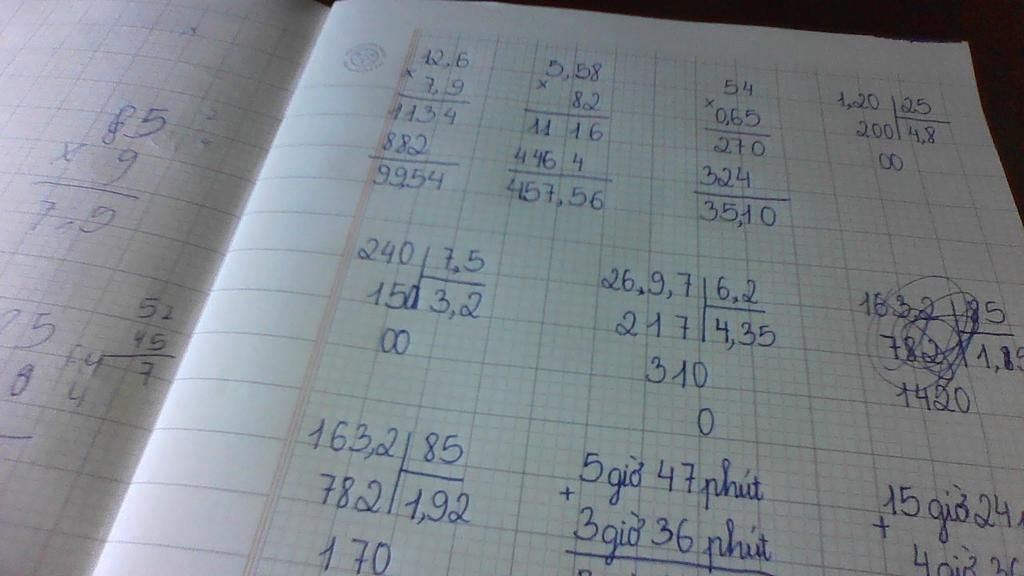 12,6
× 7,9
1134
882
9954
5,58
× 82
11 16
446 4
457,56
54
× 0,65
270
324
35,10
1,20 25
200 4,8
00
240 7,5
150 3,2
00
26,9,7 6,2
217 4,35
310
0
163,2 85
782 1,
1420
163,2 85
782 1,92
170
5 giờ 47 phút
+
3 giờ 36 phút
15 giờ 24
+
4 giờ 36
85
× 9
52
45
7